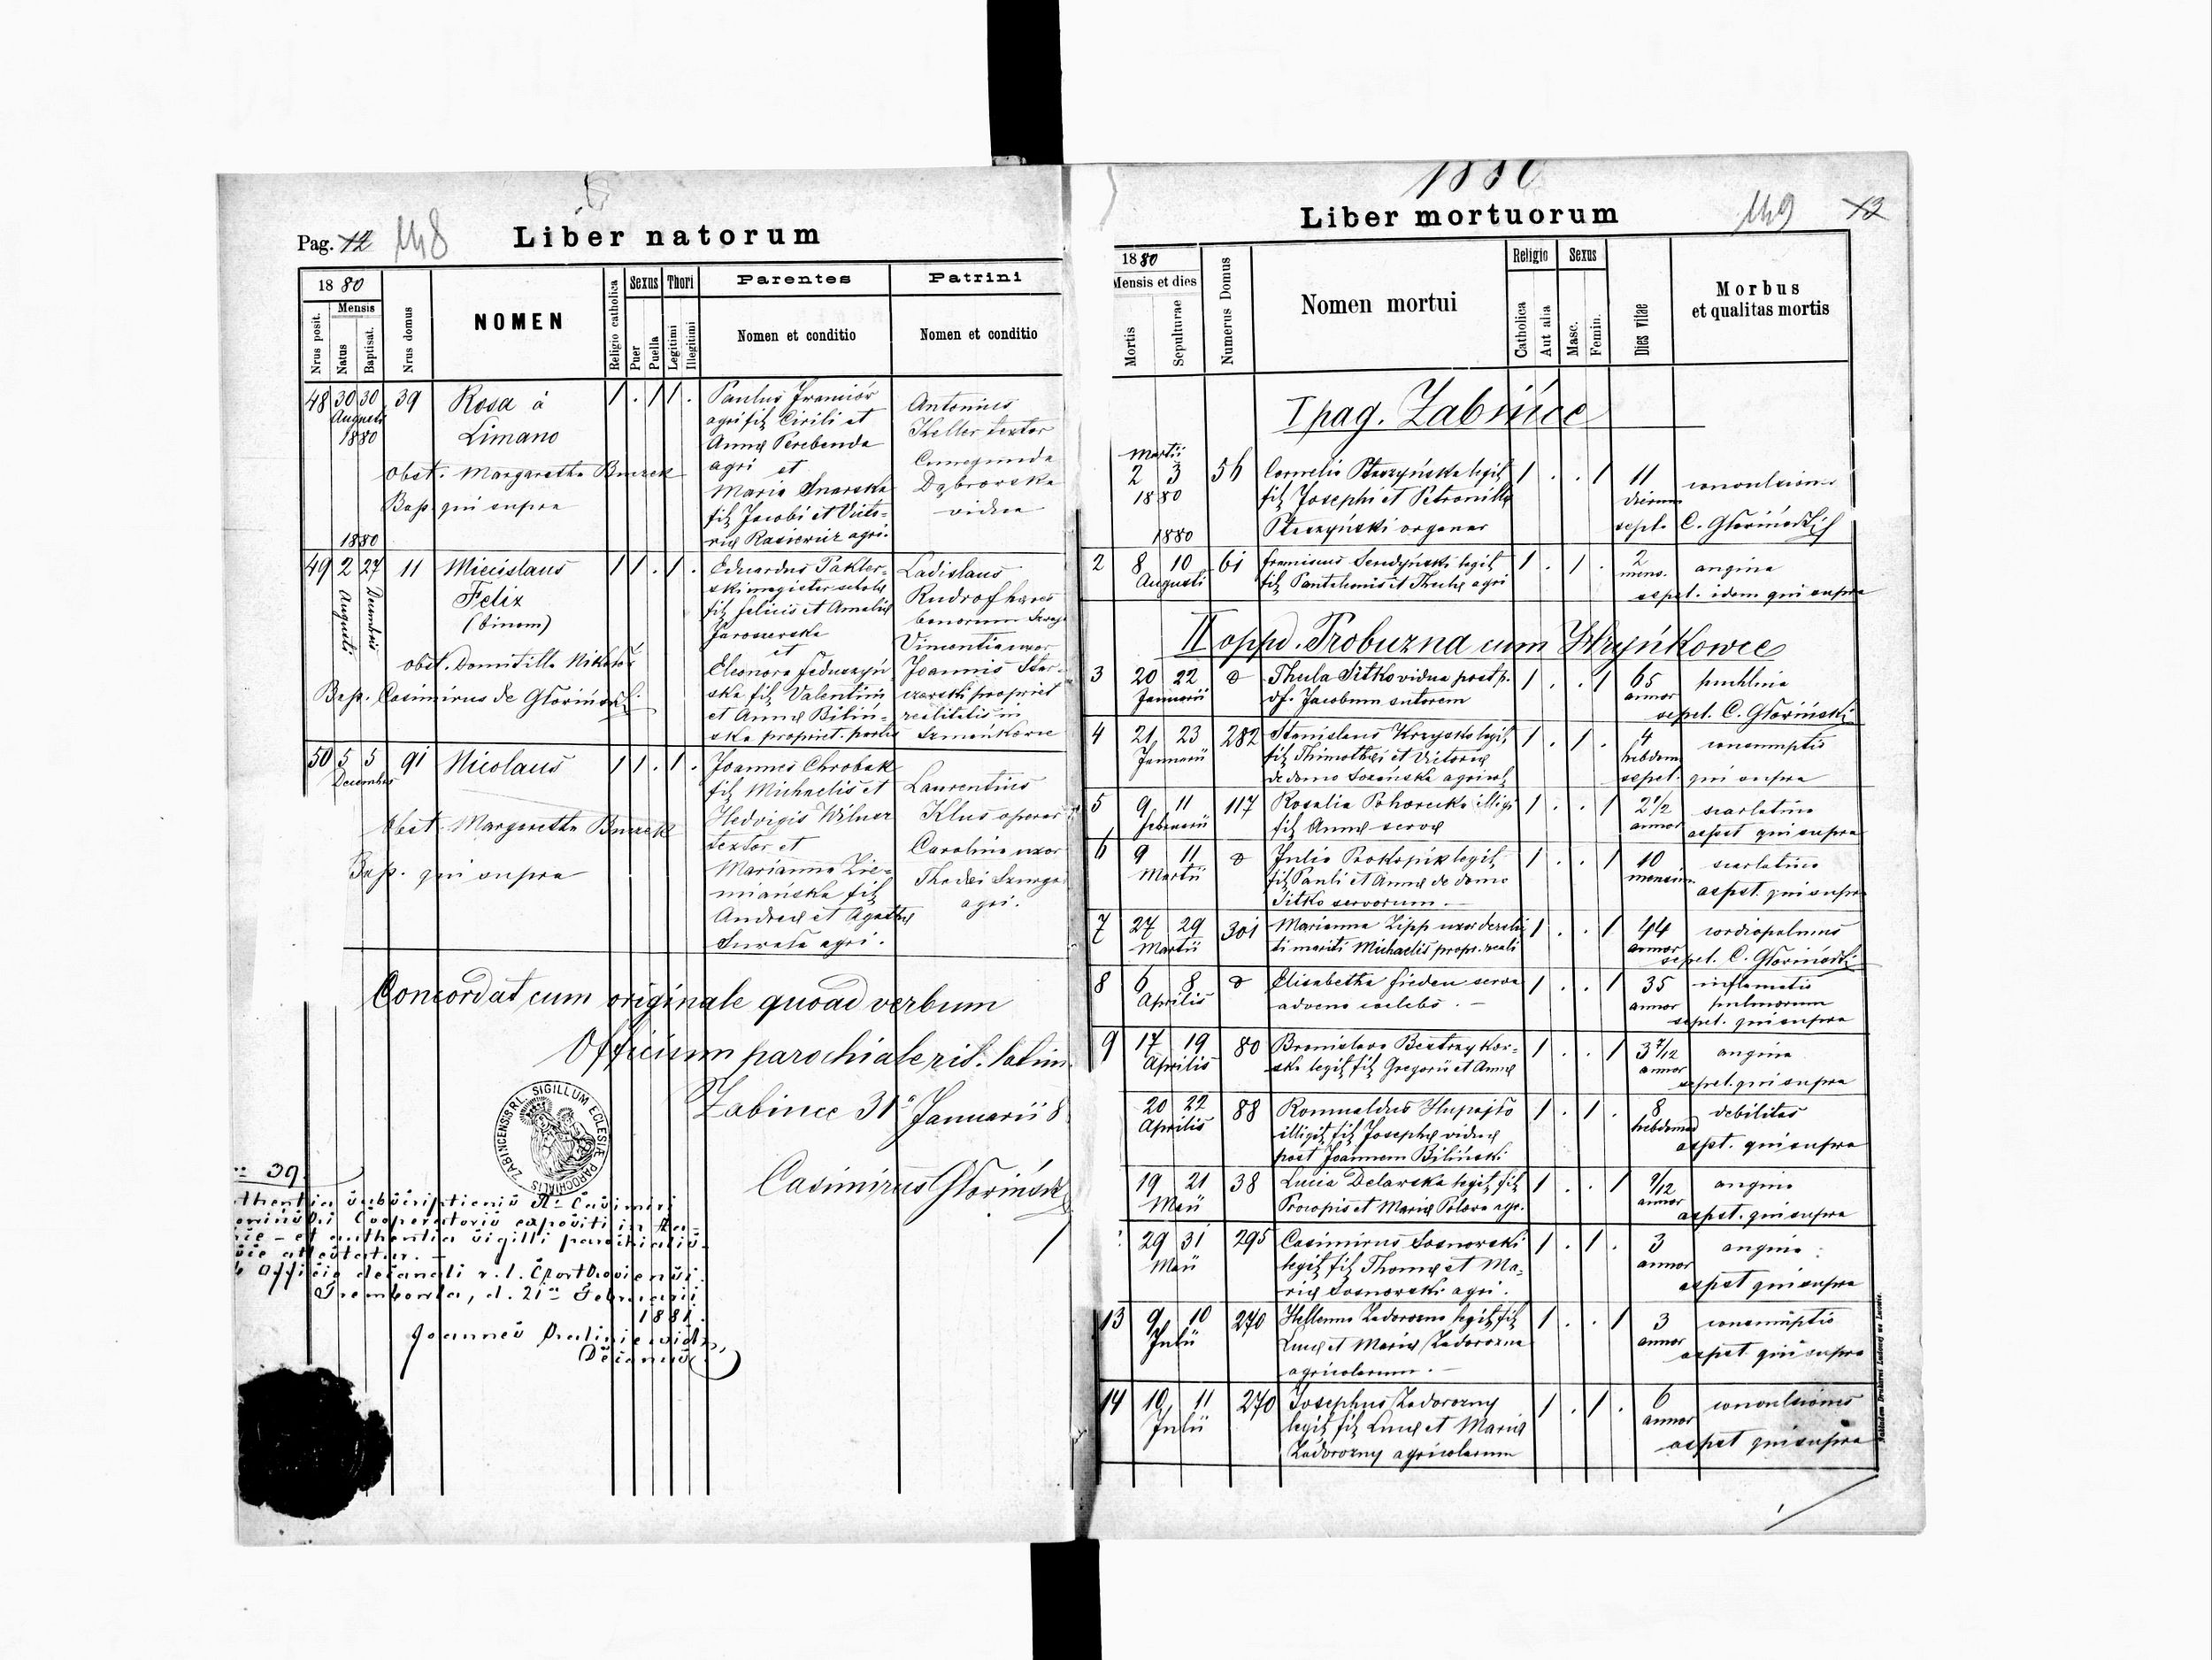 Pag. 12 148 Liber natorum
18 80
Mensis
Nrus posit.
Natus
Baptisat.
Nrus domus
NOMEN
Religio catholica
Sexus
Puer
Puella
Thori
Legitimi
Illegitimi
Parentes
Nomen et conditio
Patrini
Nomen et conditio
48 30 30 39 Rosa à 1 . 1 1 .
Augusti
1880 Limano
Paulus
agri fil. Cirili et
Anna Perebenda
agri et
Maria Snarska
fil. Jacobi et Victo-
ria Rasiewicz agri.
Antonius
Keller textor
Cunegunda
Dąbrowska
vidua
obst. Margaretha
Bap. qui supra
1880
49 2 27 11 Miecislaus 1 1 . 1 .
Augusti Decembris
Felix
(binom)
obst. Domitilla
Bap. Casimirus de Głowiński
Eduardus
ski magister schola
fil. Felicis et Amalia
et
Eleonora
ska fil. Valentini
et Anna Biliń-
ska propriet.
Ladislaus
bonorum
Vincentia uxor
Joannis
propriet
realitatis in
Szmańkowce
50 5 5 91 Nicolaus 1 1 . 1 .
Decembris
obst. Margaretha
Bap. qui supra
Joannes Chrobak
fil. Michaelis et
Hedvigis Wilner
textor et
Marianna Zie-
miańska fil.
Andrea et Agatha
agri.
Laurentius
Klus
Carolina uxor
agri.
Concordat cum originale quoad verbum
Officium parochiale rit. latin.
Żabince 31 Januarii 8
SIGILLUM ECLESIÆ PAROCHIALIS ZABINCENSS R.L.
Casimirus Głowiński
39.
subscriptionis
Cooperatoris expositi in
et authentia sigilli parochialis
attestatur.
Officio decanali r. l. Czortkoviensi
Trembowla, d. 21 Februarii
1881.
Joannes
Decanus
1880
Liber mortuorum 149 13
18 80
Mensis et dies
Mortis
Sepulturae
Numerus Domus
Nomen mortui
Religio
Catholica
Aut alia
Sexus
Masc.
Femin.
Dies vitae
Morbus
et qualitas mortis
I pag. Żabińce
Martii
2 3 56 Cornelia Ptaszyńska legit. 1 . . 1 11 convulsiones
1880 fil. Josephi et Petronilla dierum
Ptaszyński organar sepl. C. Głowiński
1880
2 8 10 61 Franciscus Seredyński legit. 1 . 1 . 2 angina
Augusti fil. Pantaleonis et Thecla agri mens.
sepel. idem qui supra
II oppd. Probuzna cum Hryńkowce
3 20 22 Thecla Sitko vidua post p. 1 . . 1 65 phthisis
Januarii df. Jacobum sutorem annor
sepel. C. Głowiński
4 21 23 282 Stanislaus Krzysko legit. 1 . 1 . 4 consumptio
Januarii fil. Thimothei et Victoria hebdom
de domo agricol. sepel. qui supra
5 9 11 117 Rosalia Pohorecka illegi 1 . . 1 2 1/2 scarlatina
Februarii fil. Anna serva annor
sepel qui supra
6 9 11 Julia Prokopik legit. 1 . . 1 10 scarlatina
Martii fil. Pauli et Anna de domo mensium
Sitko servorum. — sepel. qui supra
7 27 29 301 Marianna Zipp uxor derelic 1 . . 1 44 cordiopalmus
Martii ti mariti Michaelis propr. reali annor
sepel. C. Głowiński
8 6 8 Elisabetha Frieden serva 1 . . 1 35 inflamatio
Aprilis advena caelebs. — annor pulmorum
sepel. qui supra
9 17 19 80 Bronislava 1 . . 1 3 7/12 angina
Aprilis ska legit. fil. Gregorii et Anna annor
sepel. qui supra
20 22 88 Romualdus 1 . 1 . 8 debilitas
Aprilis illigit. fil. Josepha vidua hebdomad
post Joannem Biliński sepel. qui supra
19 21 38 Lucia Delawska legit. fil. 1 . . 1 9/12 angina
Maii Procopis et Maria agr. annor
sepel. qui supra
29 31 295 Casimirus Sosnowski 1 . 1 . 3 angina
Maii legit. fil. Thoma et Ma- annor
ria Sosnowski agri. sepel qui supra
13 9 10 270 Hellena Zadorozna legit. fil. 1 . . 1 3 consumptio
Julii Luca et Maria Zadorozna annor
agricolarum. — sepel qui supra
14 10 11 270 Josephus Zadorozny 1 . 1 . 6 convulsiones
Julii legit. fil. Luca et Maria annor
Zadorozny agricolarum sepel qui supra
Nakładem Drukarni Ludowej we Lwowie.